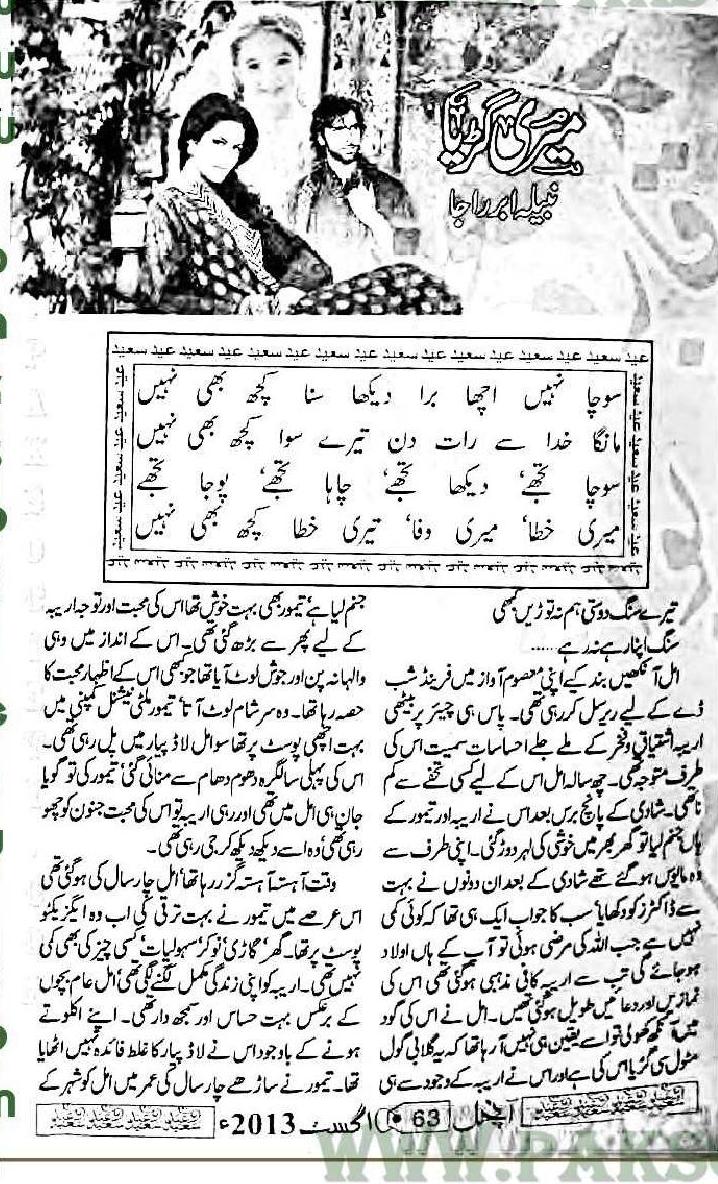 میری گڑیا
نبیلہ ابر راجا
عید سعید عید سعید عید سعید عید سعید عید سعید عید سعید عید سعید عید سعید
سوچا نہیں اچھا برا دیکھا سنا کچھ بھی نہیں
مانگا خدا سے رات دن تیرے سوا کچھ بھی نہیں
سوچا تجھے، دیکھا تجھے، چاہا تجھے، پوجا تجھے
میری خطا، میری وفا، تیری خطا کچھ بھی نہیں
تیرے سنگ دوستی ہم نہ توڑیں کبھی
سنگ اپنا رہے نہ رہے......
امل آنکھیں بند کیے اپنی معصوم آواز میں فرینڈ شپ
ڈے کے لیے ریہرسل کررہی تھی۔ پاس ہی چیئر پر بیٹھی
اریبہ اشتیاق و فخر کے ملے جلے احساسات سمیت اس کی
طرف متوجہ تھی۔ چھ سالہ امل اس کے لیے کسی تحفے سے کم
نا تھی۔ شادی کے پانچ برس بعد اس نے اریبہ اور تیمور کے
ہاں جنم لیا تو گھر بھر میں خوشی کی لہر دوڑ گئی۔ اپنی طرف سے
وہ مایوس ہوگئے تھے شادی کے بعد ان دونوں نے بہت
سے ڈاکٹرز کو دکھایا، سب کا جواب ایک ہی تھا کہ کوئی کمی
نہیں ہے جب اللہ کی مرضی ہوئی تو آپ کے ہاں اولاد
ہوجائے گی تب سے اریبہ کافی مذہبی ہوگئی تھی اس کی
نمازیں اور دعائیں طویل ہوگئی تھیں۔ امل نے اس کی گود
میں آنکھ کھولی تو اسے یقین ہی نہیں آرہا تھا کہ یہ گلابی گول
مٹول سی گڑیا اس کی ہے اور اس نے اریبہ کے وجود سے ہی
جنم لیا ہے، تیمور بھی بہت خوش تھا اس کی محبت اور توجہ اریبہ
کے لیے پھر سے بڑھ گئی تھی۔ اس کے انداز میں وہی
والہانہ پن اور جوش لوٹ آیا تھا جو کبھی اس کے اظہار محبت کا
حصہ رہا تھا۔ وہ سر شام لوٹ آتا، تیمور ملٹی نیشنل کمپنی میں
بہت اچھی پوسٹ پر تھا سو امل لاڈ پیار میں پل رہی تھی۔
اس کی پہلی سالگرہ دھوم دھام سے منائی گئی، تیمور کی تو گویا
جان ہی امل میں تھی اور رہی اریبہ تو اس کی محبت جنون کو چھو
رہی تھی، وہ اسے دیکھ دیکھ کر جی رہی تھی۔
وقت آہستہ آہستہ گزر رہا تھا، امل چار سال کی ہوگئی تھی
اس عرصے میں تیمور نے بہت ترقی کی اب وہ ایگزیکٹو
پوسٹ پر تھا۔ گھر، گاڑی، نوکر، سہولیات، کسی چیز کی بھی کمی
نہیں تھی۔ اریبہ کو اپنی زندگی مکمل لگنے لگی تھی، امل عام بچوں
کے برعکس بہت حساس اور سمجھ دار تھی۔ اپنے اکلوتے
ہونے کے باوجود اس نے لاڈ پیار کا غلط فائدہ نہیں اٹھایا
تھا۔ تیمور نے ساڑھے چار سال کی عمر میں امل کو شہر کے
آنچل 63 اگست 2013ء
WWW.PAKS